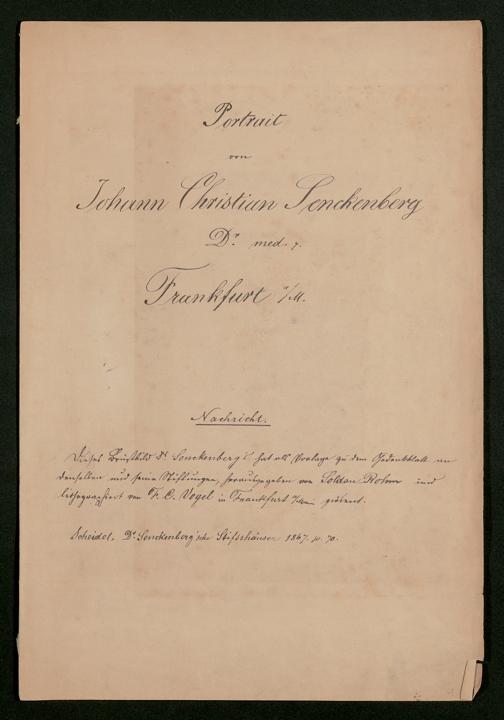 Portrait
von
Johann Christian Senckenberg
Dr. med.
Frankfurt a/M.
Nachricht.
Dieses Brustbild Dr Senckenberg's hat als Vorlage zu dem Gedenkblatt an
denselben und seine Stiftungen, herausgegeben von und
lithographiert von F. C. Vogel in Frankfurt a/Main gedient.
Scheidel, Dr. Senckenberg'sche Stiftshäuser 1867. p. 70.